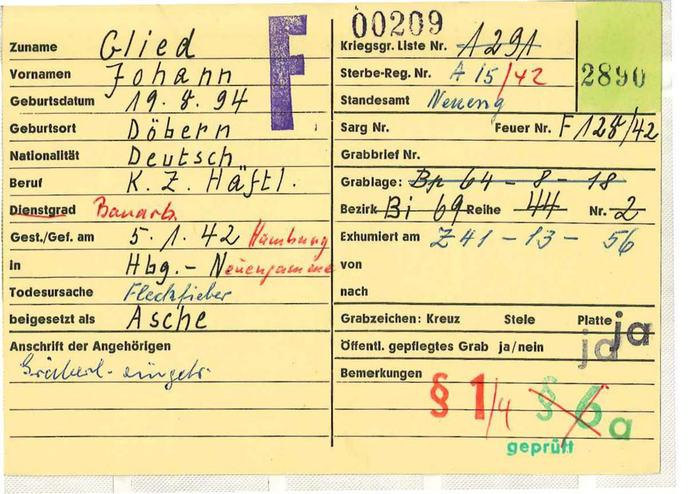 Zuname Glied
Vornamen Johann
Geburtsdatum 19. 8. 94
Geburtsort Döbern
Nationalität Deutsch
Beruf K. Z. Häftl.
Dienstgrad Bauarb.
Gest./Gef. am 5. 1. 42 Hamburg
in Hbg. - Neuengamme
Todesursache Fleckfieber
beigesetzt als Asche
Anschrift der Angehörigen
F
00209
Kriegsgr. Liste Nr. 1291
Sterbe-Reg. Nr. A 15/42
2890
Standesamt Neueng
Sarg Nr. Feuer Nr. F 128/42
Grabbrief Nr.
Grablage: Bp 64 - 8 - 18
Bezirk Bi 69 Reihe 44 Nr. 2
Exhumiert am Z 41 - 13 - 56
von
nach
Grabzeichen: Kreuz Stele Platte ja
Öffentl. gepflegtes Grab ja/nein ja
Bemerkungen
§ 1/4 § 6a
geprüft